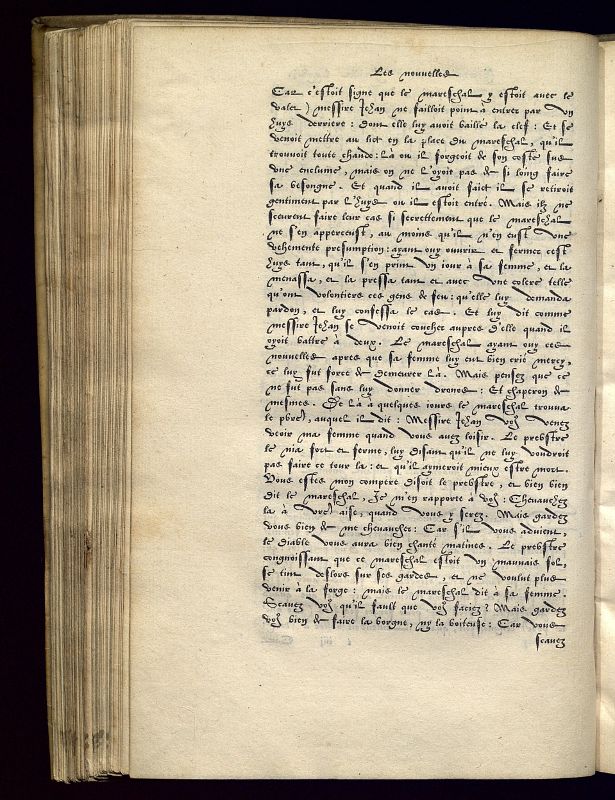 Les nouvelles
Car c'estoit signe que le mareschal y estoit avec le
valet) messire Jehan ne failloit point à entrer par vn
huys derriere: dont elle luy avoit baillé la clef: Et se
venoit mettre au lict en la place du mareschal, qu'il
trouvoit toute chaude: Là ou il forgeoit de son costé sus
vne enclume, mais on ne l'oyoit pas de si loing faire
sa besongne. Et quand il avoit faict il se retiroit
gentiment par l'huys ou il estoit entré. Mais ilz ne
sceurent faire leur cas si secrettement que le mareschal
ne s'en apperceust, au moins qu'il n'en eust vne
vehemente presumption: ayant ouy ouvrir et fermer cest
huys tant, qu'il s'en print vn iour à sa femme, et la
menassa, et la pressa tant et avec vne colere telle
qu'ont volontiers ces gens de feu: qu'elle luy demanda
pardon, et luy confessa le cas. Et luy dit comme
messire Jehan se venoit coucher aupres d'elle quand il
oyoit battre à deux. Le mareschal ayant ouy ces
nouvelles apres que sa femme luy eut bien crié mercy,
ce luy fut force de demeurer là. Mais pensez que ce
ne fut pas sans luy donner dronos: Et chaperon de
mesmes. De là à quelques iours le mareschal trouva
le pbre, auquel il dit: Messire Jehan vo9 venez
veoir ma femme quand vous avez loisir. Le prebstre
le nia fort et ferme, luy disant qu'il ne luy voudroit
pas faire ce tour la: et qu'il aymeroit mieux estre mort.
Vous estes mon compere disoit le prebstre, et bien bien
dit le mareschal, Je m'en rapporte à vo9: Chevauchez
la à vre aise, quand vous y serez. Mais gardez
vous bien de me chevaucher: Car s'il vous advient,
le diable vous aura bien chanté matines. Le prebstre
congnoissant que ce mareschal estoit vn mauvais fol,
se tint deslors sur ses gardes, et ne voulut plus
venir à la forge: mais le mareschal dit à sa femme.
Scavez vo9 qu'il fault que vo9 faciez? Mais gardez
vo9 bien de faire la borgne, ny la boiteuse: Car vous
scavez